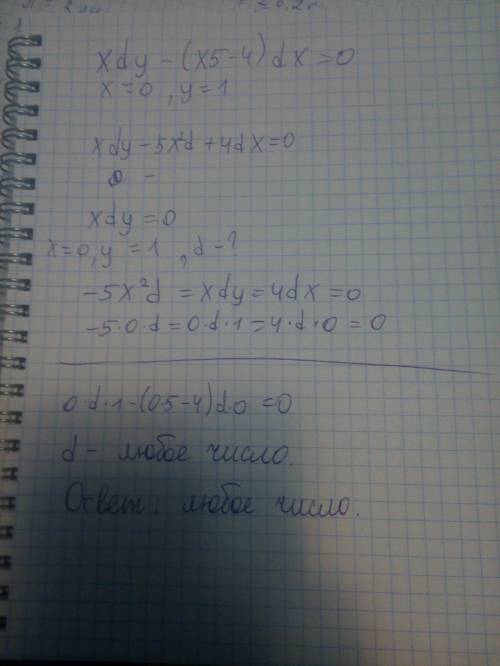 xdy - (x5-4)dx=0
x=0, y=1
xdy-5x²d+4dx=0
0 -
xdy=0
x=0, y=1, d-?
-5x²d=xdy=4dx=0
-5·0·d=0·d·1=4·d·0=0
0·d·1-(05-4)d·0=0
d - любое число.
Ответ: любое число.